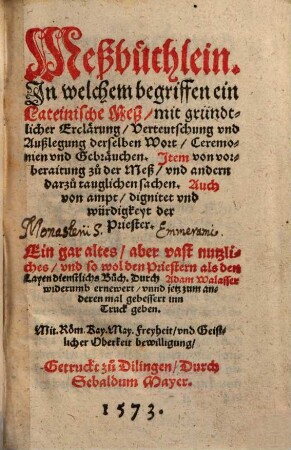 Meßbüchlein.
In welchem begriffen ein
Lateinische Meß / mit gründt-
licher Erclärung / Verteutschung vnd
Außlegung derselben Wort / Ceremo-
nien vnd Gebräuchen. Item von vor-
beraitung zů der Meß / vnd andern
darzů tauglichen sachen. Auch
von ampt / dignitet vnd
würdigkeyt der
Priester.
Monasterij S. Emmerami.
Ein gar altes / aber vast nutzli-
ches / vnd so wol den Priestern als den
Layen dienstlichs Bůch. Durch Adam Walasser
widerumb ernewert / vnnd jetz zum an-
deren mal gebessert inn
Truck geben.
Mit Röm. Kay. May. Freyheit / vnd Geist-
licher Oberkeit bewilligung /
Getruckt zů Dilingen / Durch
Sebaldum Mayer.
1573.